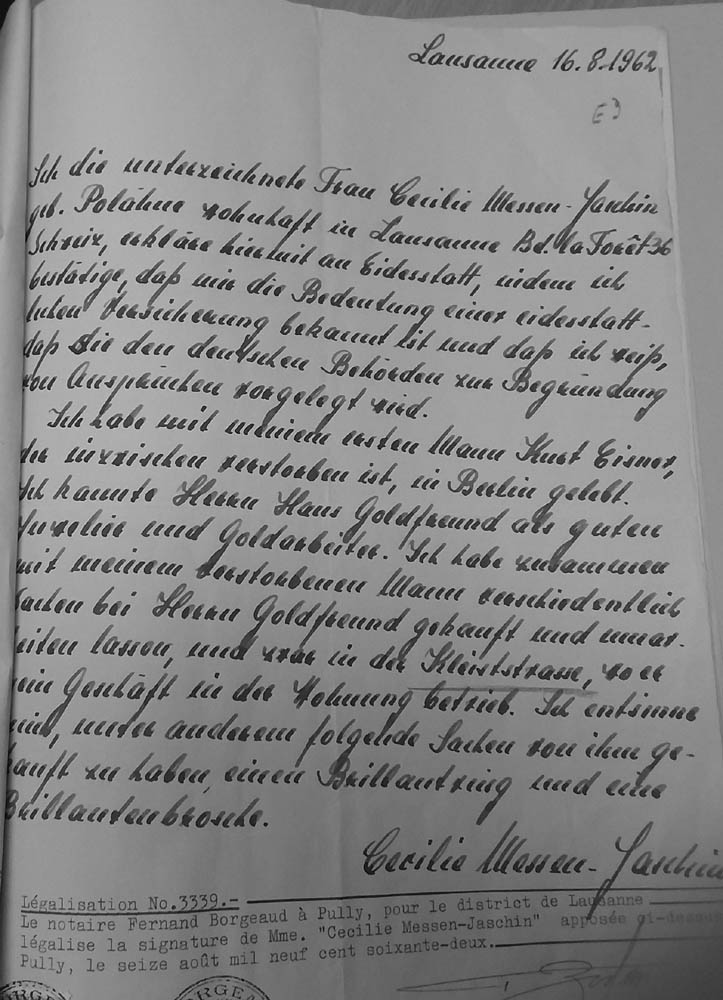 Lausanne 16.8.1962
E 3
Ich die unterzeichnete Frau Cecilie Messen-Jaschin
geb. Polähne wohnhaft in Lausanne Bd. la Forêt 36
Schweiz, erkläre hiermit an Eidesstatt, indem ich
bestätige, daß mir die Bedeutung einer eidesstatt-
lichen Versicherung bekannt ist und daß ich weiß,
daß Sie den deutschen Behörden zur Begründung
von Ansprüchen vorgelegt wird.
Ich habe mit meinem ersten Mann Kurt Eisner,
der inzwischen verstorben ist, in Berlin gelebt.
Ich kannte Herrn Hans Goldfreund als guten
Juwelier und Goldarbeiter. Ich habe zusammen
mit meinem verstorbenen Mann verschiedentlich
Sachen bei Herrn Goldfreund gekauft und umar-
beiten lassen, und zwar in der Kleiststrasse, wo er
sein Geschäft in der Wohnung betrieb. Ich entsinne
mich, unter anderem folgende Sachen von ihm ge-
kauft zu haben, einen Brillantring und eine
Brillantenbrosche.
Cecilie Messen-Jaschin
Légalisation No.3339.-
Le notaire Fernand Borgeaud à Pully, pour le district de Lausanne
légalise la signature de Mme. "Cecilie Messen-Jaschin" apposée ci-dessus
Pully, le seize août mil neuf cent soixante-deux.